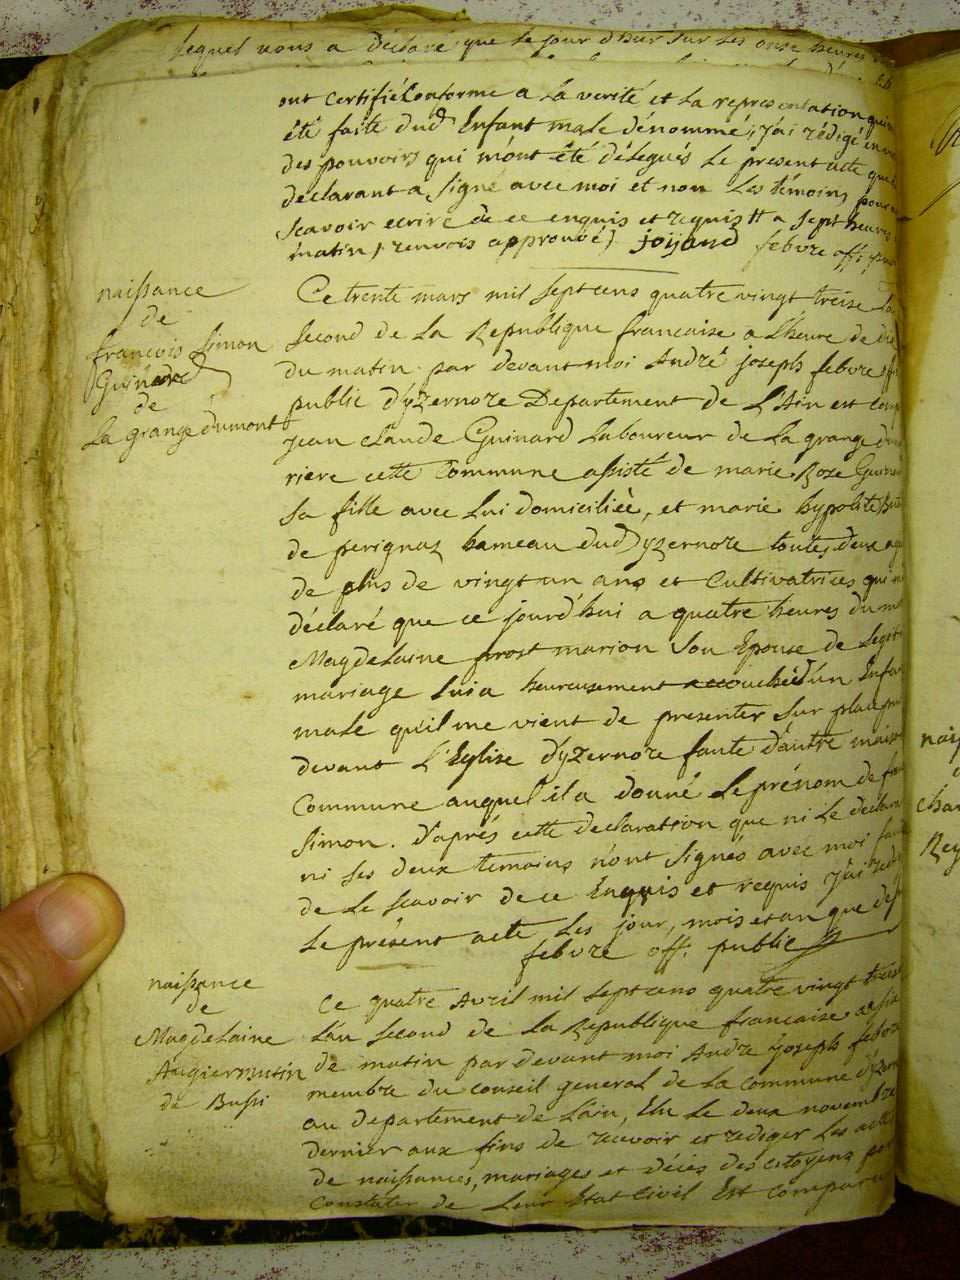 lequel nous a déclaré que le jour d'hier sur les onze heures
ont certifié Conforme a La verité et La representation qui m'a
été faite dud Enfant male dénommé, j'ai rédigé en vertu
des pouvoirs qui m'ont été délegués Le present acte que le
déclarant a signé avec moi et non Les témoins pour ne
scavoir ecrire de ce enquis et requis # a sept heures
matin, renvois approuvé) joijand febvre off. public
naissance
de
francois Simon
Guinard
de
La grange dumont
Ce trente mars mil sept cens quatre vingt treise La
second de La Republique francaise a L'heure de dix
du matin par devant moi André joseph febvre off
public d'yzernore Departement de L'Ain est comp
jean claude Guinard Laboureur de La grange du
riere cette Commune assisté de marie Roze Guinard
sa fille avec Lui domiciliée, et marie hypolite
de perignaz hameau dud yzernore toutes deux ag
de plus de vingt un ans et Cultivatrices qui
déclaré que ce jourd'hui a quatre heures du mat
Magdelaine prost marion son Epouse de Legit
mariage Lui a heureusement accouchéé d'un Enfan
male qu'il me vient de presenter sur place pu
devant L'Eglise d'yzernore faute d'autre maison
Commune auquel il a donné Le prénom de fran
Simon. d'aprés cette declaration que ni Le declara
ni ses deux temoins n'ont signés avec moi faute
de Le scavoir de ce Enquis et requis j'ai redi
Le présent acte Les jour, mois et an que dess
febvre off. public
naissance
de
Magdelaine
Augier mutin
de Bussi
Ce quatre Avril mil sept cens quatre vingt treise
L'an second de La Republique francaise a six
de matin par devant moi André joseph febvre
membre du conseil general de La Commune d'yzern
au departement de L'ain, Elu Le deux novembre
dernier aux fins de recevoir et rediger Les actes
de naissances, mariages et décés des citoyens pour
Constater de Leur Etat Civil Est comparu